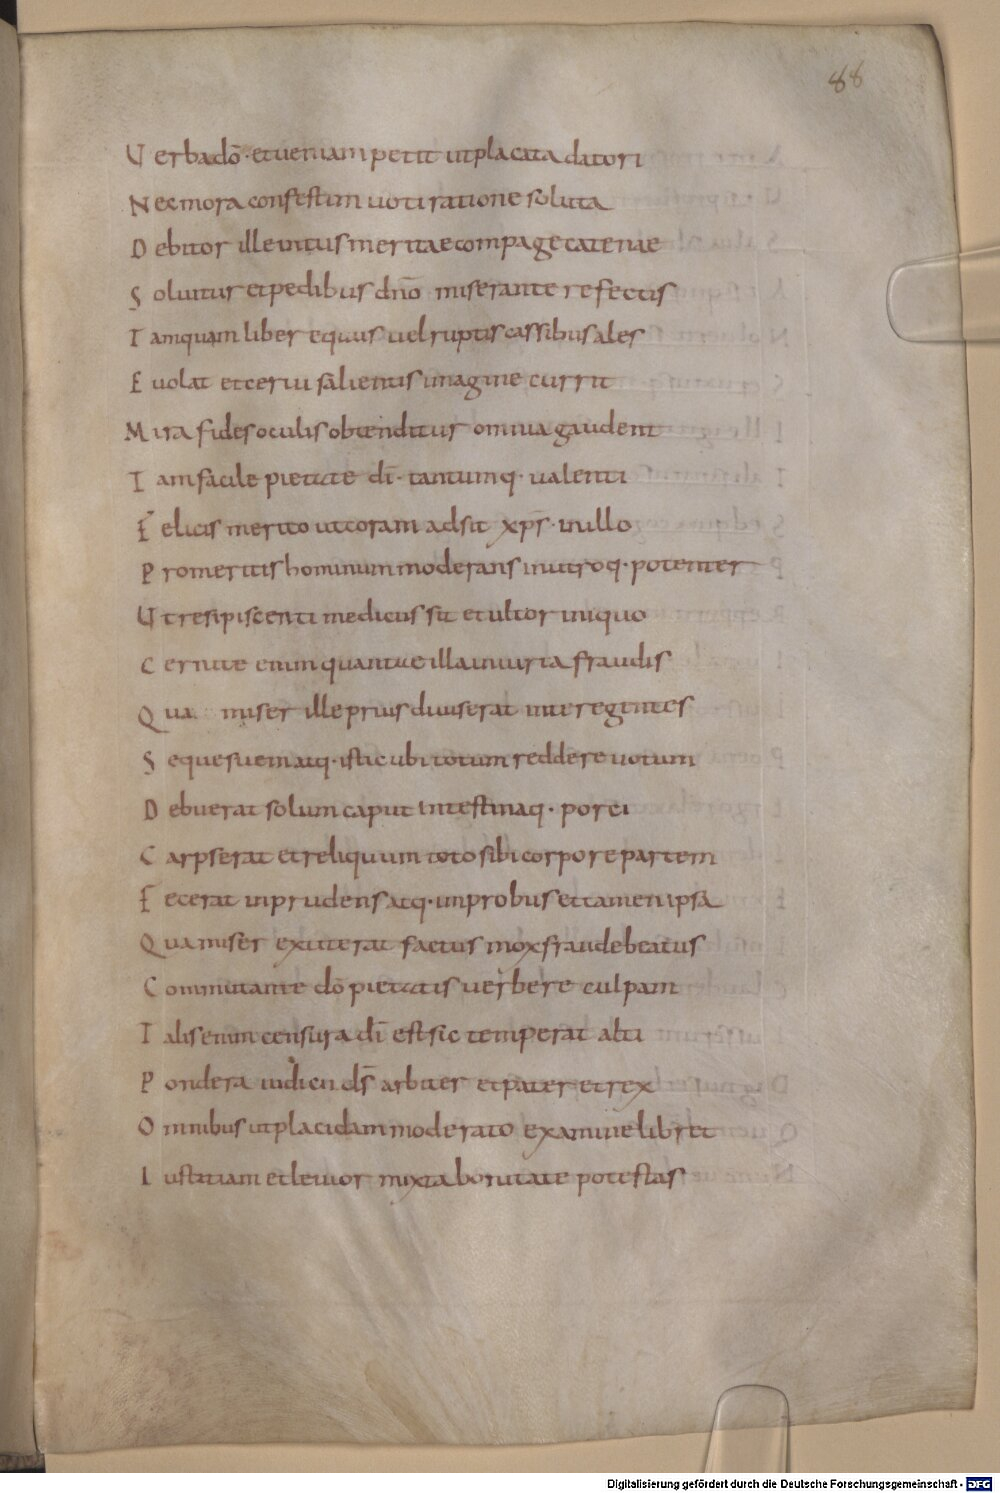 88
Verba dō· et veniam petit ut placata datori
Nec mora confestim voti ratione soluta
Debitor ille intus meritae compage catenae
Soluitur et pedibus dnō miserante refectis
Tamquam liber equus vel ruptis cassibus ales
Evolat et cervi salientis imagine currit
Mira fides oculis obtenditur omnia gaudent
Tam facile pietate dī· tantumq· valenti
Felicis merito ut coram adsit xp̄s· in illo
Pro meritis hominum moderans in utroq· potenter
Ut resipiscenti medicus sit et ultor iniquo
Cernite enim quantae illa iniuria fraudis
Qua miser ille prius diviserat inter egentes
Seque suem atq· istic ubi totum reddere votum
Debuerat solum caput intestinaq· porci
Carpserat et reliquum toto sibi corpore partem
Fecerat inprudens atq· improbus et tamen ipsa
Qua miser exiterat factus mox fraude beatus
Commutante dō pietatis verbere culpam
Talis enim censura dī est sic temperat alti
Pondera iudicii ds̄ arbiter et pater et rex
Omnibus ut placidam moderato examine libret
Iustitiam et levior mixta bonitate potestas
Digitalisierung gefördert durch die Deutsche Forschungsgemeinschaft - DFG